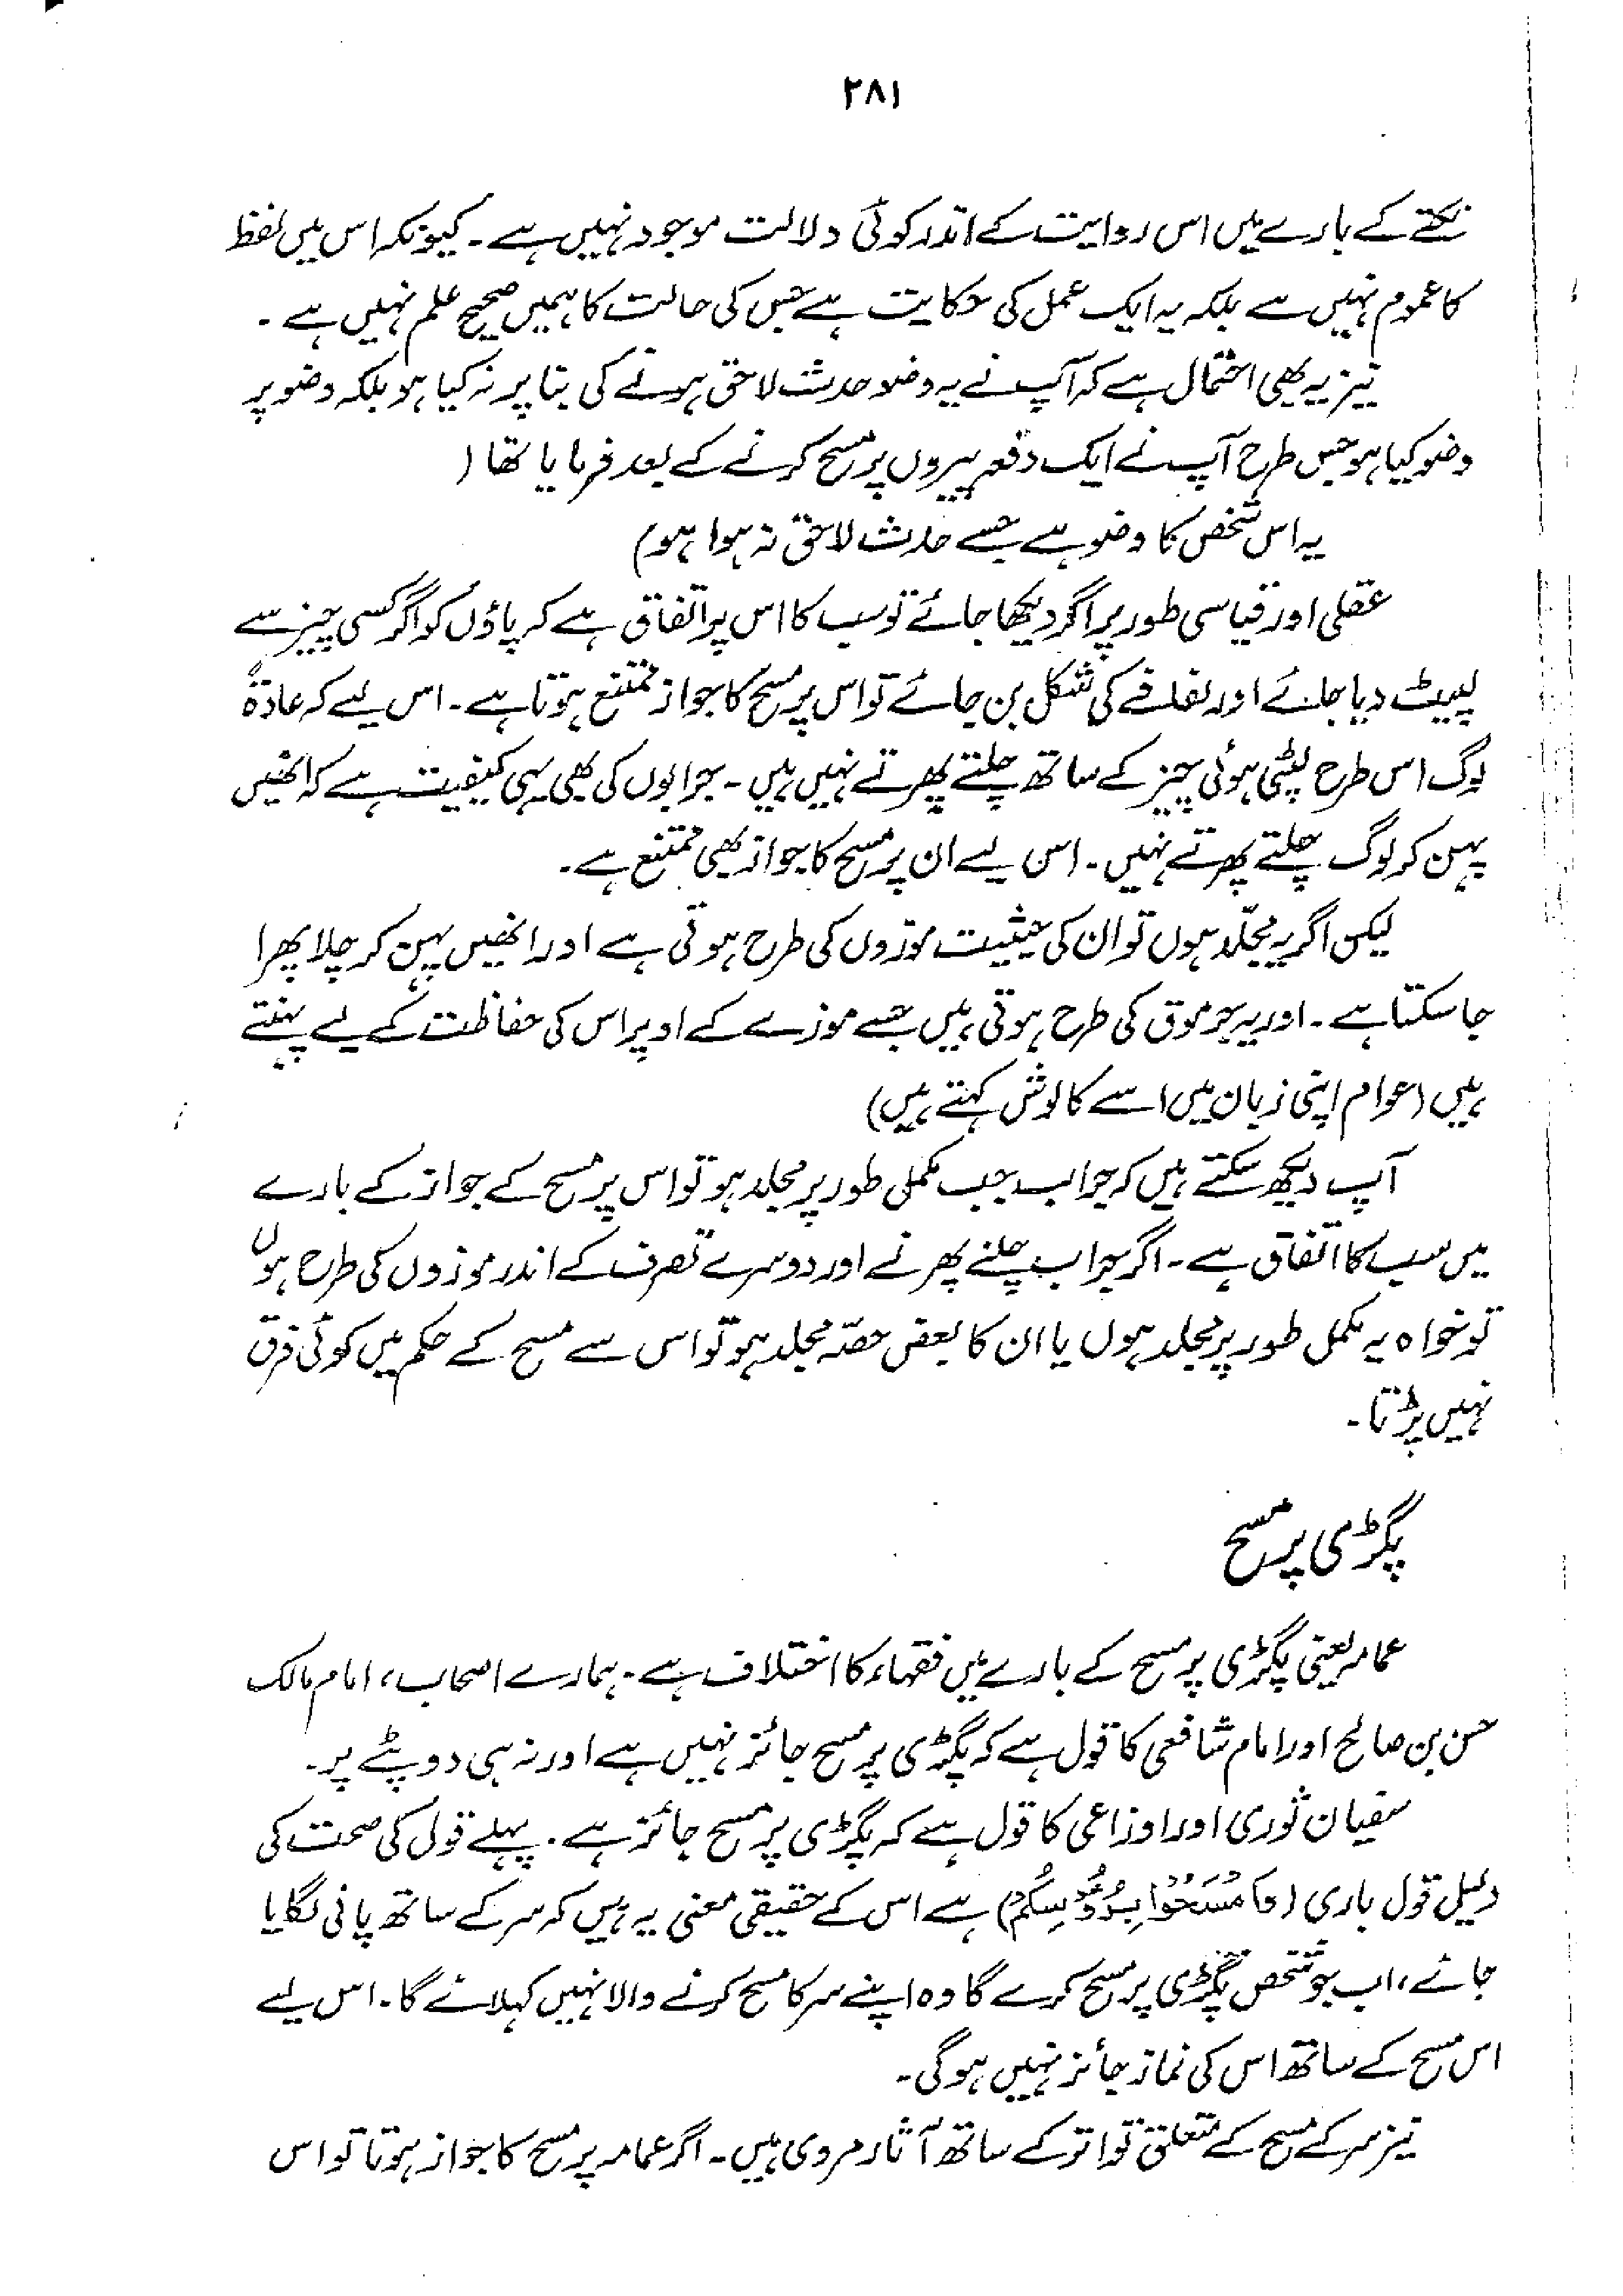 ۲۸۱
نکتے کے بارے میں اس روایت کے اندر کوئی دلالت موجود نہیں ہے۔ کیونکہ اس میں لفظ
کا عموم نہیں ہے بلکہ یہ ایک عمل کی حکایت ہے جس کی حالت کا ہمیں صحیح علم نہیں ہے۔
نیز یہ بھی احتمال ہے کہ آپ نے یہ وضو حدث لاحق ہونے کی بنا پر نہ کیا ہو بلکہ وضو پر
وضو کیا ہو جس طرح آپ نے ایک دفعہ پیروں پر مسح کرنے کے بعد فرمایا تھا (
یہ اس شخص کا وضو ہے جسے حدث لاحق نہ ہوا ہو)
عقلی اور قیاسی طور پر اگر دیکھا جائے تو سب کا اس پر اتفاق ہے کہ پاؤں کو اگر کسی چیز سے
لپیٹ دیا جائے اور لفافے کی شکل بن جائے تو اس پر مسح کا جواز ممتنع ہوتا ہے۔ اس لیے کہ عادۃً
لوگ اس طرح لپٹی ہوئی چیز کے ساتھ چلتے پھرتے نہیں ہیں۔ جرابوں کی بھی یہی کیفیت ہے کہ انھیں
پہن کر لوگ چلتے پھرتے نہیں۔ اس لیے ان پر مسح کا جواز بھی ممتنع ہے۔
لیکن اگر یہ مجلّد ہوں تو ان کی حیثیت موزوں کی طرح ہوتی ہے اور انھیں پہن کر چلا پھرا
جا سکتا ہے۔ اور یہ جرموق کی طرح ہوتی ہیں جسے موزے کے اوپر اس کی حفاظت کے لیے پہنتے
ہیں (عوام اپنی زبان میں اسے کالوش کہتے ہیں)
آپ دیکھ سکتے ہیں کہ جراب جب مکمل طور پر مجلد ہو تو اس پر مسح کے جواز کے بارے
میں سب کا اتفاق ہے۔ اگر جراب چلنے پھرنے اور دوسرے تصرف کے اندر موزوں کی طرح ہوں
تو خواہ یہ مکمل طور پر مجلد ہوں یا ان کا بعض حصّہ مجلد ہو تو اس سے مسح کے حکم میں کوئی فرق
نہیں پڑتا۔
پگڑی پر مسح
عمامہ یعنی پگڑی پر مسح کے بارے میں فقہاء کا اختلاف ہے۔ ہمارے اصحاب، امام مالک
حسن بن صالح اور امام شافعی کا قول ہے کہ پگڑی پر مسح جائز نہیں ہے اور نہ ہی دوپٹے پر۔
سفیان ثوری اور اوزاعی کا قول ہے کہ پگڑی پر مسح جائز ہے۔ پہلے قول کی صحت کی
دلیل قول باری (وَامْسَحُوْا بِرُءُوْسِكُمْ) ہے اس کے حقیقی معنی یہ ہیں کہ سر کے ساتھ پانی لگایا
جائے، اب جو شخص پگڑی پر مسح کرے گا وہ اپنے سر کا مسح کرنے والا نہیں کہلائے گا۔ اس لیے
اس مسح کے ساتھ اس کی نماز جائز نہیں ہوگی۔
نیز سر کے مسح کے متعلق تواتر کے ساتھ آثار مروی ہیں۔ اگر عمامہ پر مسح کا جواز ہوتا تو اس